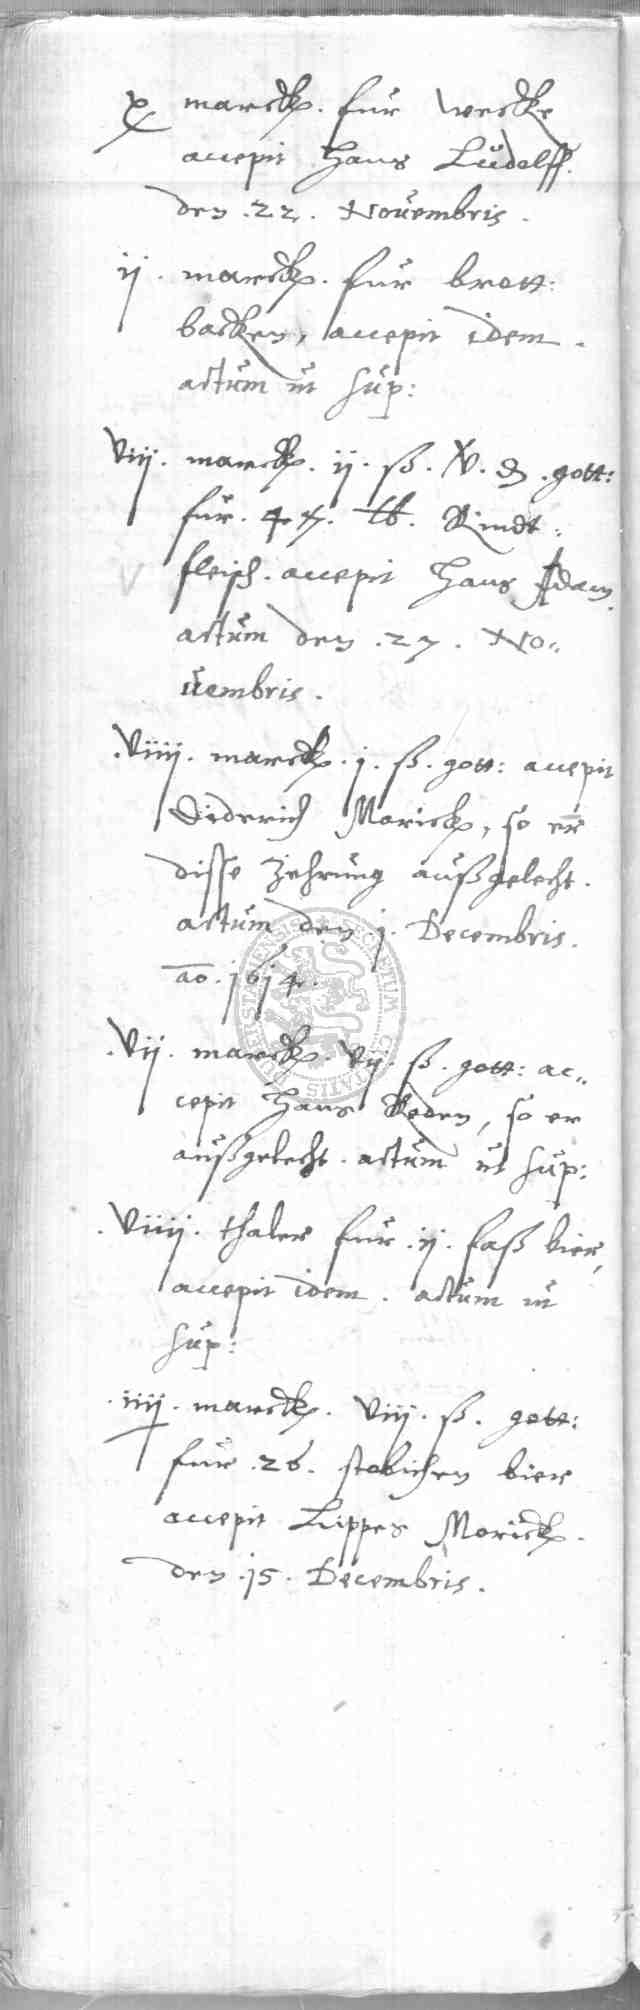 x marck. für wecke
accepit Hans Ludolff.
den .22. Novembris.
ij. marck. für brott:
backen, accepit idem.
actum ut sup:
Viij. marck. ij. ß. V. d. gott:
für. 47. lb. Rindt„
fleisch. accepit Hans Adam.
actum den .27. No„
uembris.
.Viiij. marck. j. ß. gott: accepit
Diderich Morick, so er
disse Zehrung außgelecht.
actum den .j. Decembris.
ao. 1614.
.Vij. marck. Vij. ß. gott: ac„
cepit Hans Reden, so er
außgelecht. actum ut sup:
.Viiij. thaler für .ij. faß bier,
accepit idem. actum ut
sup:
.iiij. marck. Viij. ß. gott:
für .26. stobichen bier
accepit Lippes Morick.
den .15. Decembris.
SECRETUM CIVITATIS